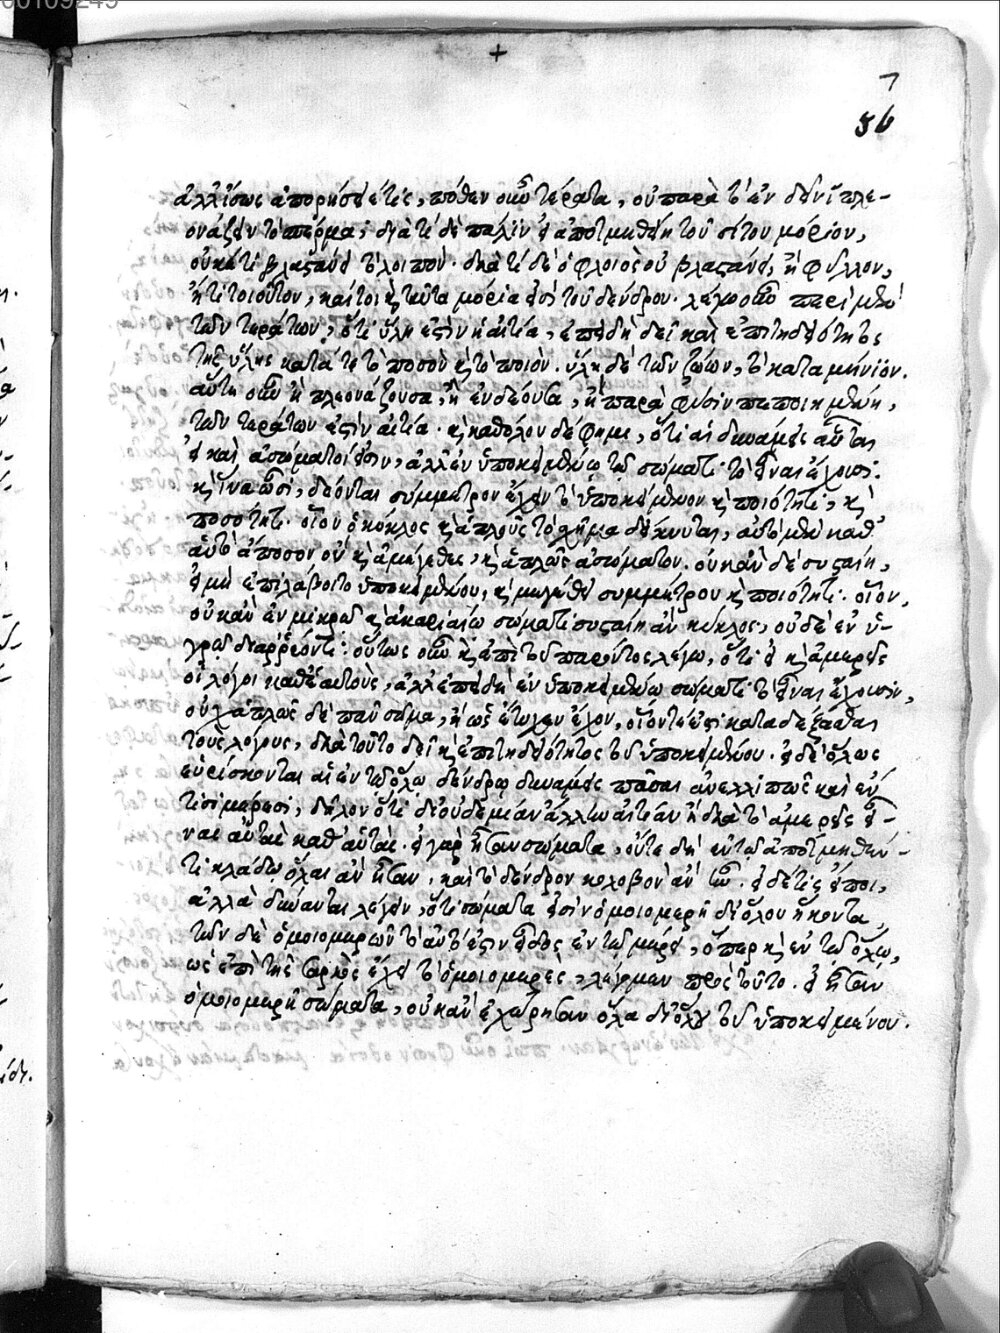 00109249
+
7
56
ἀλλ' ἴσως ἀπορήσειέ τις, πόθεν οὖν τέρατα, οὐ παρὰ τὸ ἐνδεῖν ἢ πλε-
ονάζειν τὸ σπέρμα; διὰ τί δὲ πάλιν εἰ ἀποτμηθείη τοῦ σίτου μόριον,
οὐκέτι βλαστάνει τὸ λοιπόν. διὰ τί δὲ ὁ φλοιὸς οὐ βλαστάνει, ἢ φύλλον,
ἤ τι τοιοῦτον, καίτοι καὶ ταῦτα μόρια εἰσὶ τοῦ δένδρου. λέγω οὖν περὶ μὲν
τῶν τεράτων, ὅτι ὕλη ἐστὶν ἡ αἰτία, ἐπειδὴ δεῖ καὶ ἐπιτηδειότητος
τῆς ὕλης κατά τε τὸ ποσὸν καὶ τὸ ποιόν. ὕλη δὲ τῶν ζώων, τὸ καταμήνιον.
αὕτη οὖν ἢ πλεονάζουσα, ἢ ἐνδέουσα, ἢ παρὰ φύσιν πεποιημένη,
τῶν τεράτων ἐστὶν αἰτία. καὶ καθόλου δέ φημι, ὅτι αἱ δυνάμεις αὗται
εἰ καὶ ἀσώματοι εἰσὶν, ἀλλ' ἐν ὑποκειμένῳ τῷ σώματι τὸ εἶναι ἔχουσι.
καὶ ἵνα ὦσι, δέονται σύμμετρον ἔχειν τὸ ὑποκείμενον καὶ ποιότητι, καὶ
ποσότητι. οἷον ὁ κύκλος καὶ ἁπλῶς τὸ σχῆμα δείκνυται, αὐτὸ μὲν καθ'
αὑτὸ ἄποσον ὂν καὶ ἀμέγεθες, καὶ ἁπλῶς ἀσώματον. οὐκ ἂν δὲ συσταίη,
εἰ μὴ ἐπιλάβοιτο ὑποκειμένου, καὶ μεγέθει συμμέτρου καὶ ποιότητι. οἷον,
οὐκ ἂν ἐν μικρῷ καὶ ἀκαριαίῳ σώματι συσταίη ἂν κύκλος, οὐδὲ ἐν ὑ-
γρῷ διαρρέοντι. οὕτως οὖν καὶ ἐπὶ τοῦ παρόντος λέγω, ὅτι εἰ καὶ ἀμερεῖς
οἱ λόγοι καθ' ἑαυτοὺς, ἀλλ' ἐπειδὴ ἐν ὑποκειμένῳ σώματι τὸ εἶναι ἔχουσιν,
οὐχ ἁπλῶς δὲ πᾶν σῶμα, ἢ ὡς ἔτυχεν ἔχον, οἷόν τέ ἐστι καταδέξασθαι
τοὺς λόγους, διὰ τοῦτο δεῖ καὶ ἐπιτηδειότητος τοῦ ὑποκειμένου. εἰ δὲ ὅλως
εὑρίσκονται αἱ ἐν τῷ ὅλῳ δένδρῳ δυνάμεις πᾶσαι ἀνελλιπῶς καὶ ἔν
τισι μέρεσι, δῆλον ὅτι δι' οὐδεμίαν ἄλλην αἰτίαν ἢ διὰ τὸ ἀμερεῖς εἶ-
ναι αὐτὰς καθ' αὑτάς. εἰ γὰρ ἦσαν σώματα, οὔτε δὴ ἐν τῷ ἀποτμηθέν-
τι κλάδῳ ὅλαι ἂν ἦσαν, καὶ τὸ δένδρον κολοβὸν ἂν ἦν. εἰ δέ τις εἴποι,
ἀλλὰ δύναται λέγειν, ὅτι σώματα εἰσὶν ὁμοιομερῆ δι' ὅλου ἥκοντα,
τῶν δὲ ὁμοιομερῶν τὸ αὐτό ἐστιν εἶδος ἐν τῷ μέρει, ὅπερ καὶ ἐν τῷ ὅλῳ,
ὡς ἐπὶ τῆς σαρκὸς ἔχει τὸ ὁμοιομερὲς, λέγομεν πρὸς τοῦτο. εἰ ἦσαν
ὁμοιομερῆ σώματα, οὐκ ἂν ἐχώρησαν ὅλα δι' ὅλου τοῦ ὑποκειμένου.